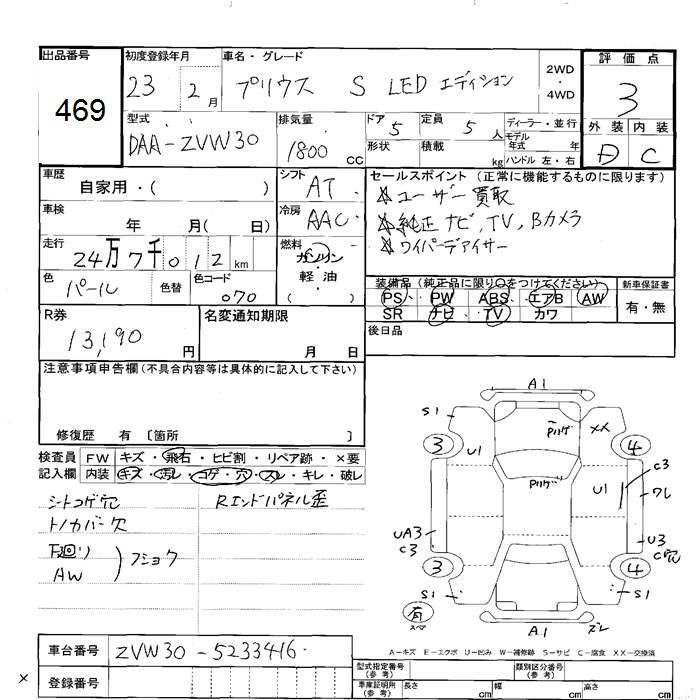 出品番号
469
初度登録年月
23 2月
車名・グレード
プリウス S LED エディション
2WD・4WD
評価点
3
型式
DAA-ZVW30
排気量
1800 CC
ドア 5
形状
定員 5人
積載 kg
ディーラー・並行
モデル年式 年
ハンドル 左・右
外装 内装
D C
車歴
自家用・( )
シフト
AT
セールスポイント (正常に機能するものに限ります)
ユーザー買取
純正ナビ, TV, Bカメラ
ワイパーデアイサー
車検
年 月( 日)
冷房
AAC
走行
24万7千012km
燃料
ガソリン・軽油
( ・ )
色
パール
色替
色コード
070
装備品(純正品に限り○をつけてください)
PS、PW、ABS、エアB AW
SR ナビ TV カワ
新車保証書
有・無
R券
13,190 円
名変通知期限
月 日
後日品
注意事項申告欄(不具合内容等は具体的に記入して下さい)
修復歴 有〔箇所 〕
検査員記入欄
FW キズ・飛石・ヒビ割・リペア跡・×要
内装 キズ・汚れ・コゲ・穴・スレ・キレ・破レ
シートコゲ穴
Rエンドパネル歪
トノカバー欠
下廻り
AW
フショク
A1
S1
3
U1
Pハゲ
XX
4
Pハゲ
U1
C3
ワレ
UA3
C3
U3
C穴
3
4
S1
S1
有
スペア
A1
ズレ
A-キズ E-エクボ U-凹み W-補修跡 S-サビ C-腐食 XX-交換済
車台番号
ZVW30-5233416
登録番号
型式指定番号(参考)
類別区分番号(参考)
車庫証明用(参考)
長さ cm
幅 cm
高さ cm
×